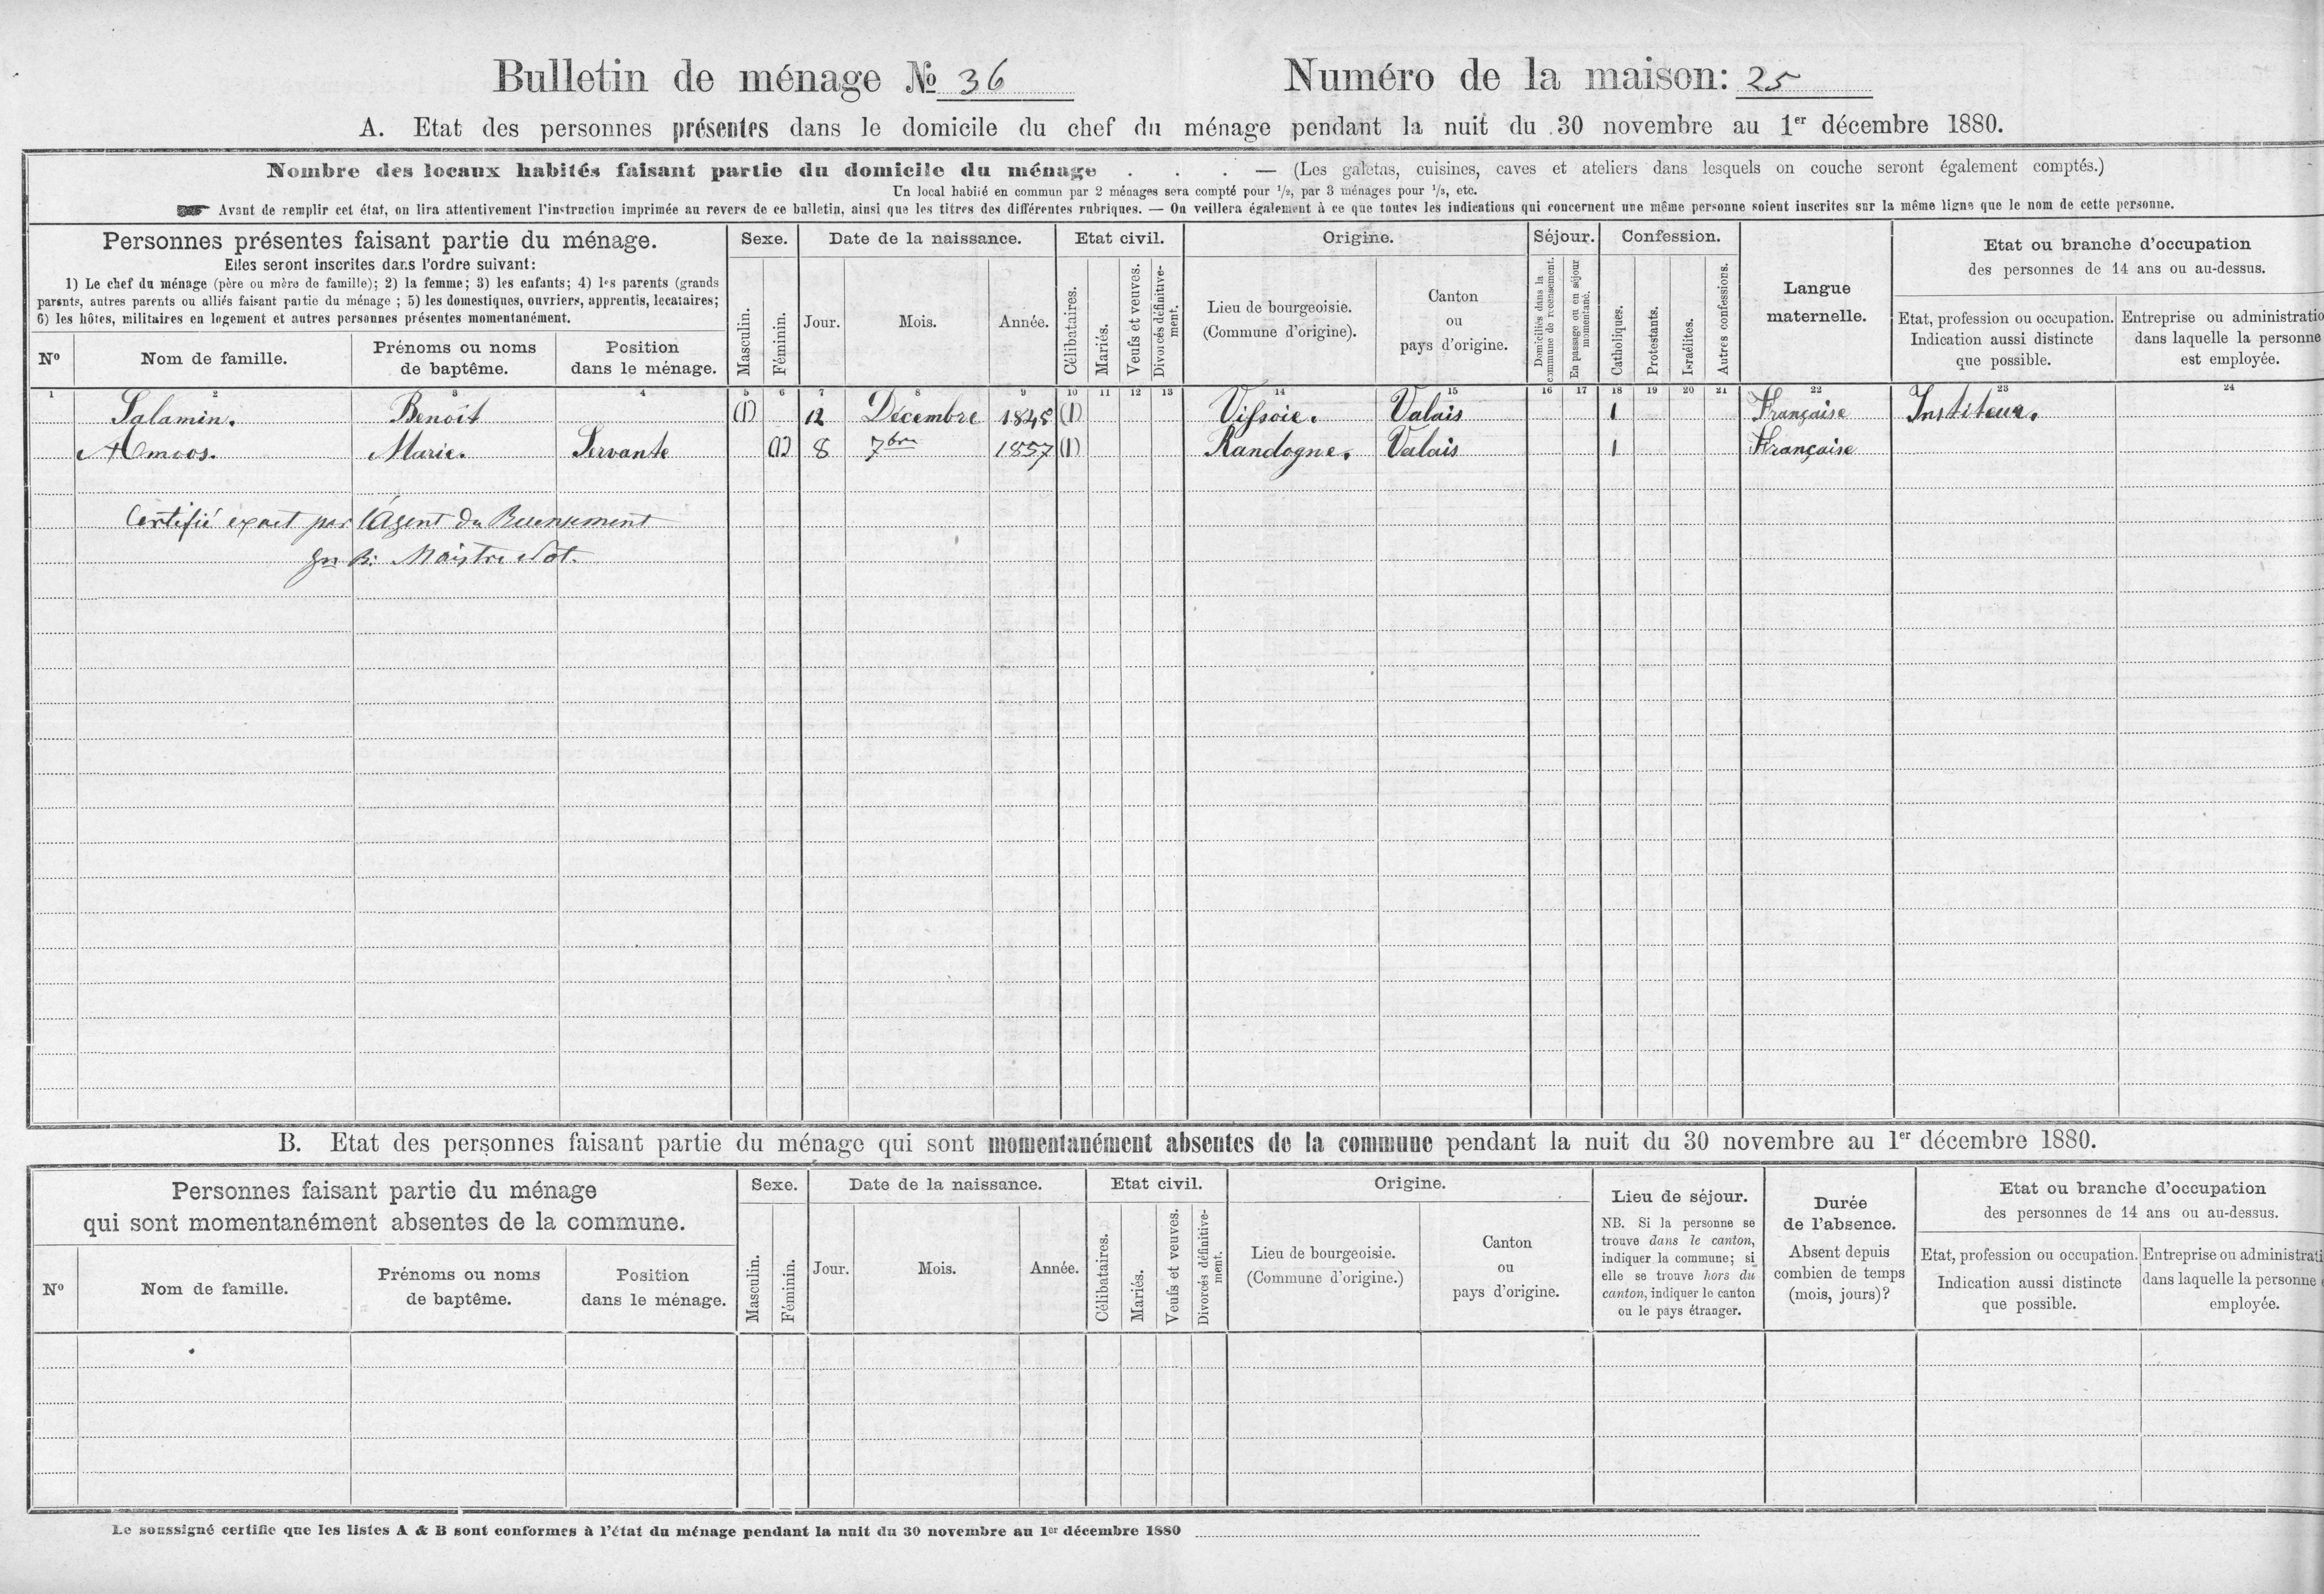 Bulletin de ménage № 36
Numéro de la maison: 25
A. Etat des personnes présentes dans le domicile du chef du ménage pendant la nuit du 30 novembre au 1er décembre 1880.
Nombre des locaux habités faisant partie du domicile du ménage . . . — (Les galetas, cuisines, caves et ateliers dans lesquels on couche seront également comptés.)
Un local habité en commun par 2 ménages sera compté pour 1/2, par 3 ménages pour 1/3, etc.
Avant de remplir cet état, on lira attentivement l'instruction imprimée au revers de ce bulletin, ainsi que les titres des différentes rubriques. — On veillera également à ce que toutes les indications qui concernent une même personne soient inscrites sur la même ligne que le nom de cette personne.
Personnes présentes faisant partie du ménage.
Elles seront inscrites dans l'ordre suivant:
1) Le chef du ménage (père ou mère de famille); 2) la femme; 3) les enfants; 4) les parents (grands
parents, autres parents ou alliés faisant partie du ménage ; 5) les domestiques, ouvriers, apprentis, locataires;
6) les hôtes, militaires en logement et autres personnes présentes momentanément.
No
Nom de famille.
Prénoms ou noms
de baptême.
Position
dans le ménage.
Sexe.
Masculin.
Féminin.
Date de la naissance.
Jour.
Mois.
Année.
Etat civil.
Célibataires.
Mariés.
Veufs et veuves.
Divorcés définitive-
ment.
Origine.
Lieu de bourgeoisie.
(Commune d'origine).
Canton
ou
pays d'origine.
Séjour.
Domiciliés dans la
commune de recensement.
En passage ou en séjour
momentané.
Confession.
Catholiques.
Protestants.
Israélites.
Autres confessions.
Langue
maternelle.
Etat ou branche d'occupation
des personnes de 14 ans ou au-dessus.
Etat, profession ou occupation.
Indication aussi distincte
que possible.
Entreprise ou administratio
dans laquelle la personne
est employée.
1 2 3 4 5 6 7 8 9 10 11 12 13 14 15 16 17 18 19 20 21 22 23 24
Salamin. Benoît (1) 12 Décembre 1848 (1) Vissoie. Valais 1 Française Instituteur.
Amoos. Marie. Servante (1) 8 7bre 1857 (1) Randogne. Valais 1 Française
Certifié exact par l'Agent du Recensement
Jn B: Maistre Not.
B. Etat des personnes faisant partie du ménage qui sont momentanément absentes de la commune pendant la nuit du 30 novembre au 1er décembre 1880.
Personnes faisant partie du ménage
qui sont momentanément absentes de la commune.
No
Nom de famille.
Prénoms ou noms
de baptême.
Position
dans le ménage.
Sexe.
Masculin.
Féminin.
Date de la naissance.
Jour.
Mois.
Année.
Etat civil.
Célibataires.
Mariés.
Veufs et veuves.
Divorcés définitive-
ment.
Origine.
Lieu de bourgeoisie.
(Commune d'origine.)
Canton
ou
pays d'origine.
Lieu de séjour.
NB. Si la personne se
trouve dans le canton,
indiquer la commune; si
elle se trouve hors du
canton, indiquer le canton
ou le pays étranger.
Durée
de l'absence.
Absent depuis
combien de temps
(mois, jours)?
Etat ou branche d'occupation
des personnes de 14 ans ou au-dessus.
Etat, profession ou occupation.
Indication aussi distincte
que possible.
Entreprise ou administrati
dans laquelle la personne
employée.
Le soussigné certifie que les listes A & B sont conformes à l'état du ménage pendant la nuit du 30 novembre au 1er décembre 1880